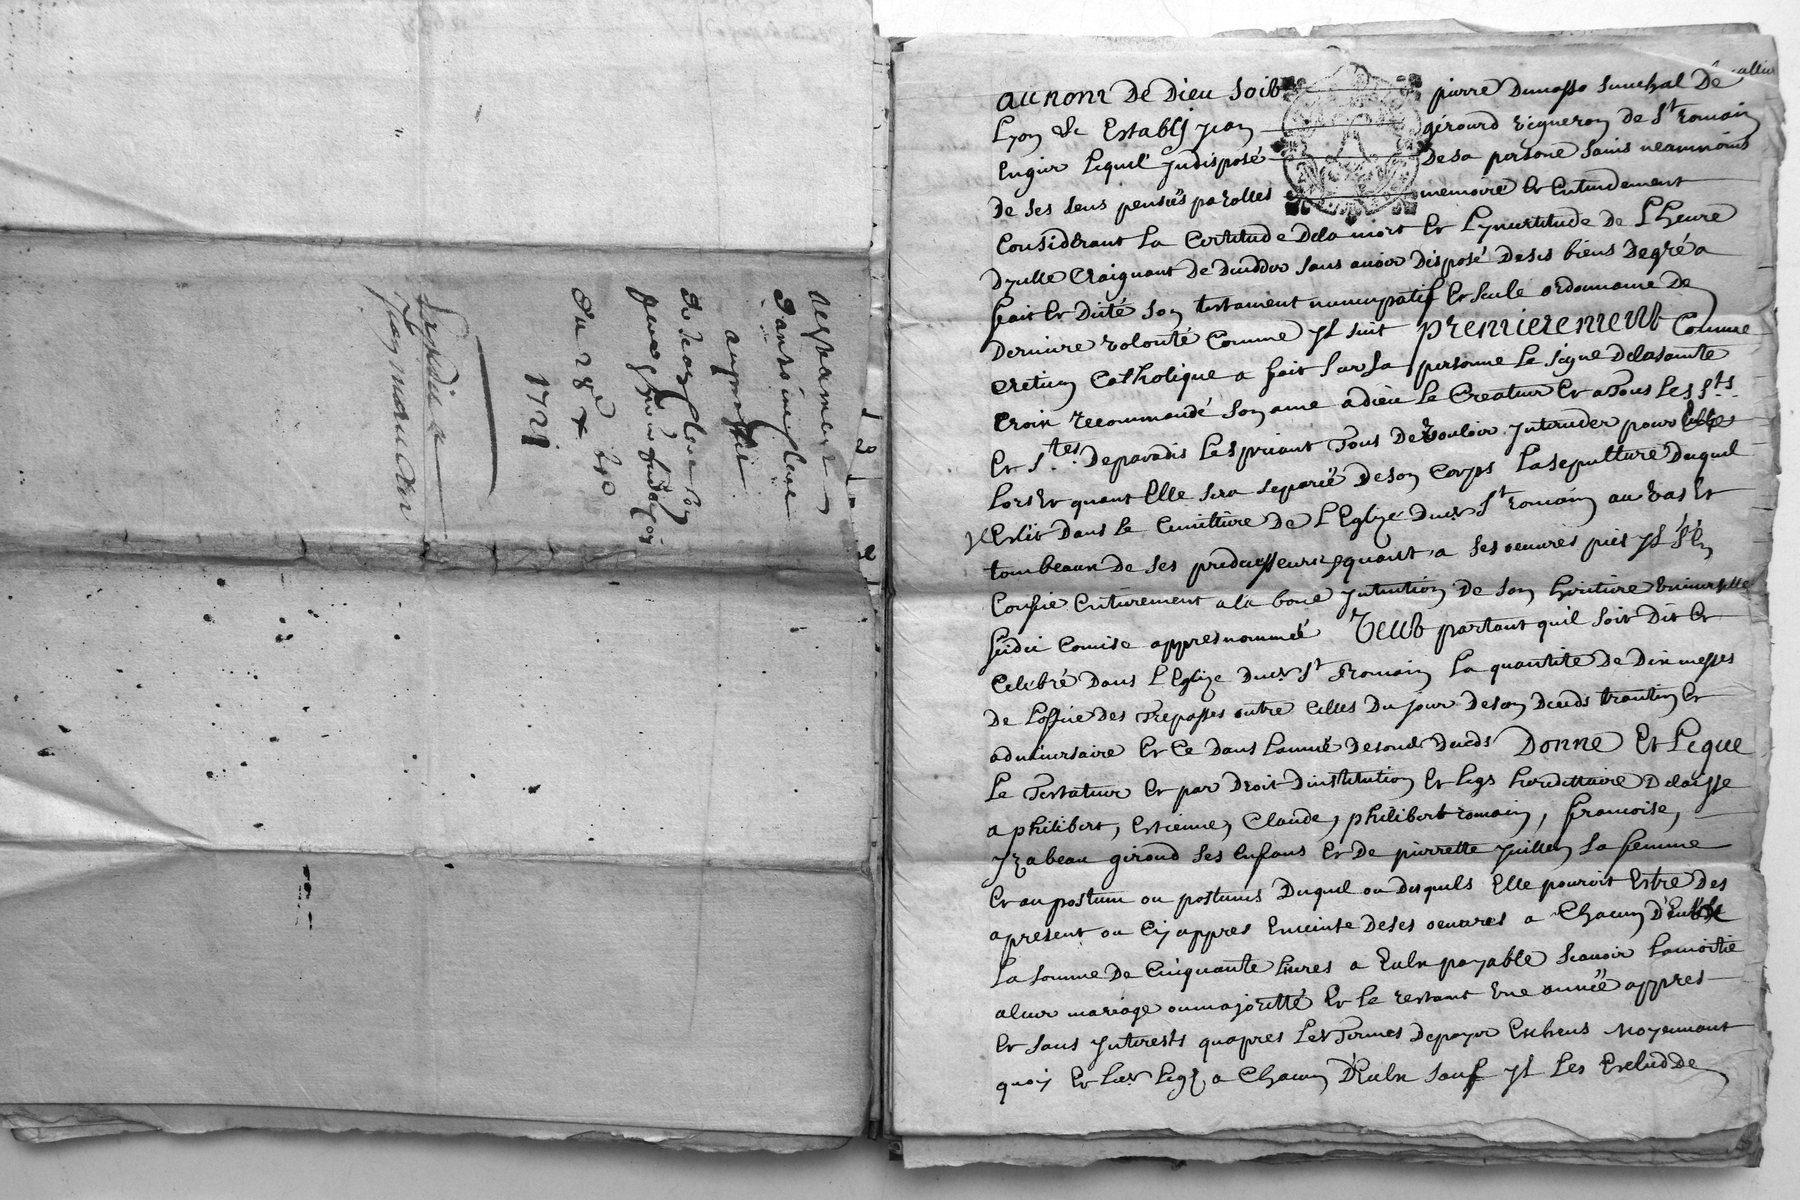 Du 28e
1721
Expédié
au nom de dieu soit
pierre senechal de
Lyon &c Establi jean
girourd vigneron de St Romain
Engier lequel jndisposé
de sa persone sains neanmoins
de ses sens pensées parolles
memoire et entendement
Considerant la certitude de la mort et Lyncertitude de Lheure
dycelle craignant de decedder sans avoir disposé de ses biens de gré a
fait et dicté son testament noncupatif et seule ordonnance de
derniere volonté comme jl suit premierement comme
cretien catholique a fait sur sa personne le signe de la sainte
croix recommandé son ame a dieu le createur et a tous les Sts
et Stes de paradis les priant tous de vouloir jnterceder pour elle
lors et quant elle sera separée de son corps la sepulture duquel
Eslit dans le cimittiere de L'Eglize dud St Romain au vas et
tombeaux de ses predecesseurs quant a ses oeuvres pies jl s'en
confie entierement a la bone jntention de son heritiere universelle
fidei comise appres nommée veut partant quil soit dit et
celebré dans L'Eglize dud St Romain la quantité de dix messes
de Loffice des trepasses outre celles du jour de son deceds trantin et
adniversaire et ce dans Lannée de sond deceds Donne et Legue
le testateur et par droit dinstitution et legs hereditaire delaisse
a philibert, estienne, Claude, philibert romain, francoise,
yzabeau giroud ses enfans et de pierrette sa femme
et au postum ou postumes duquel ou desquels elle pourroit estre des
apresent ou cy appres enceinte de ses oeuvres a chacun d'eux
la somme de cinquante livres a eulx payable scavoir la moitié
a leur mariage ou majoritté et le restant une année appres
et sans jnterests quapres les termes de payer escheus moyennant
quoy et lesd legz a chacun d'eulx sauf jl les exclud de